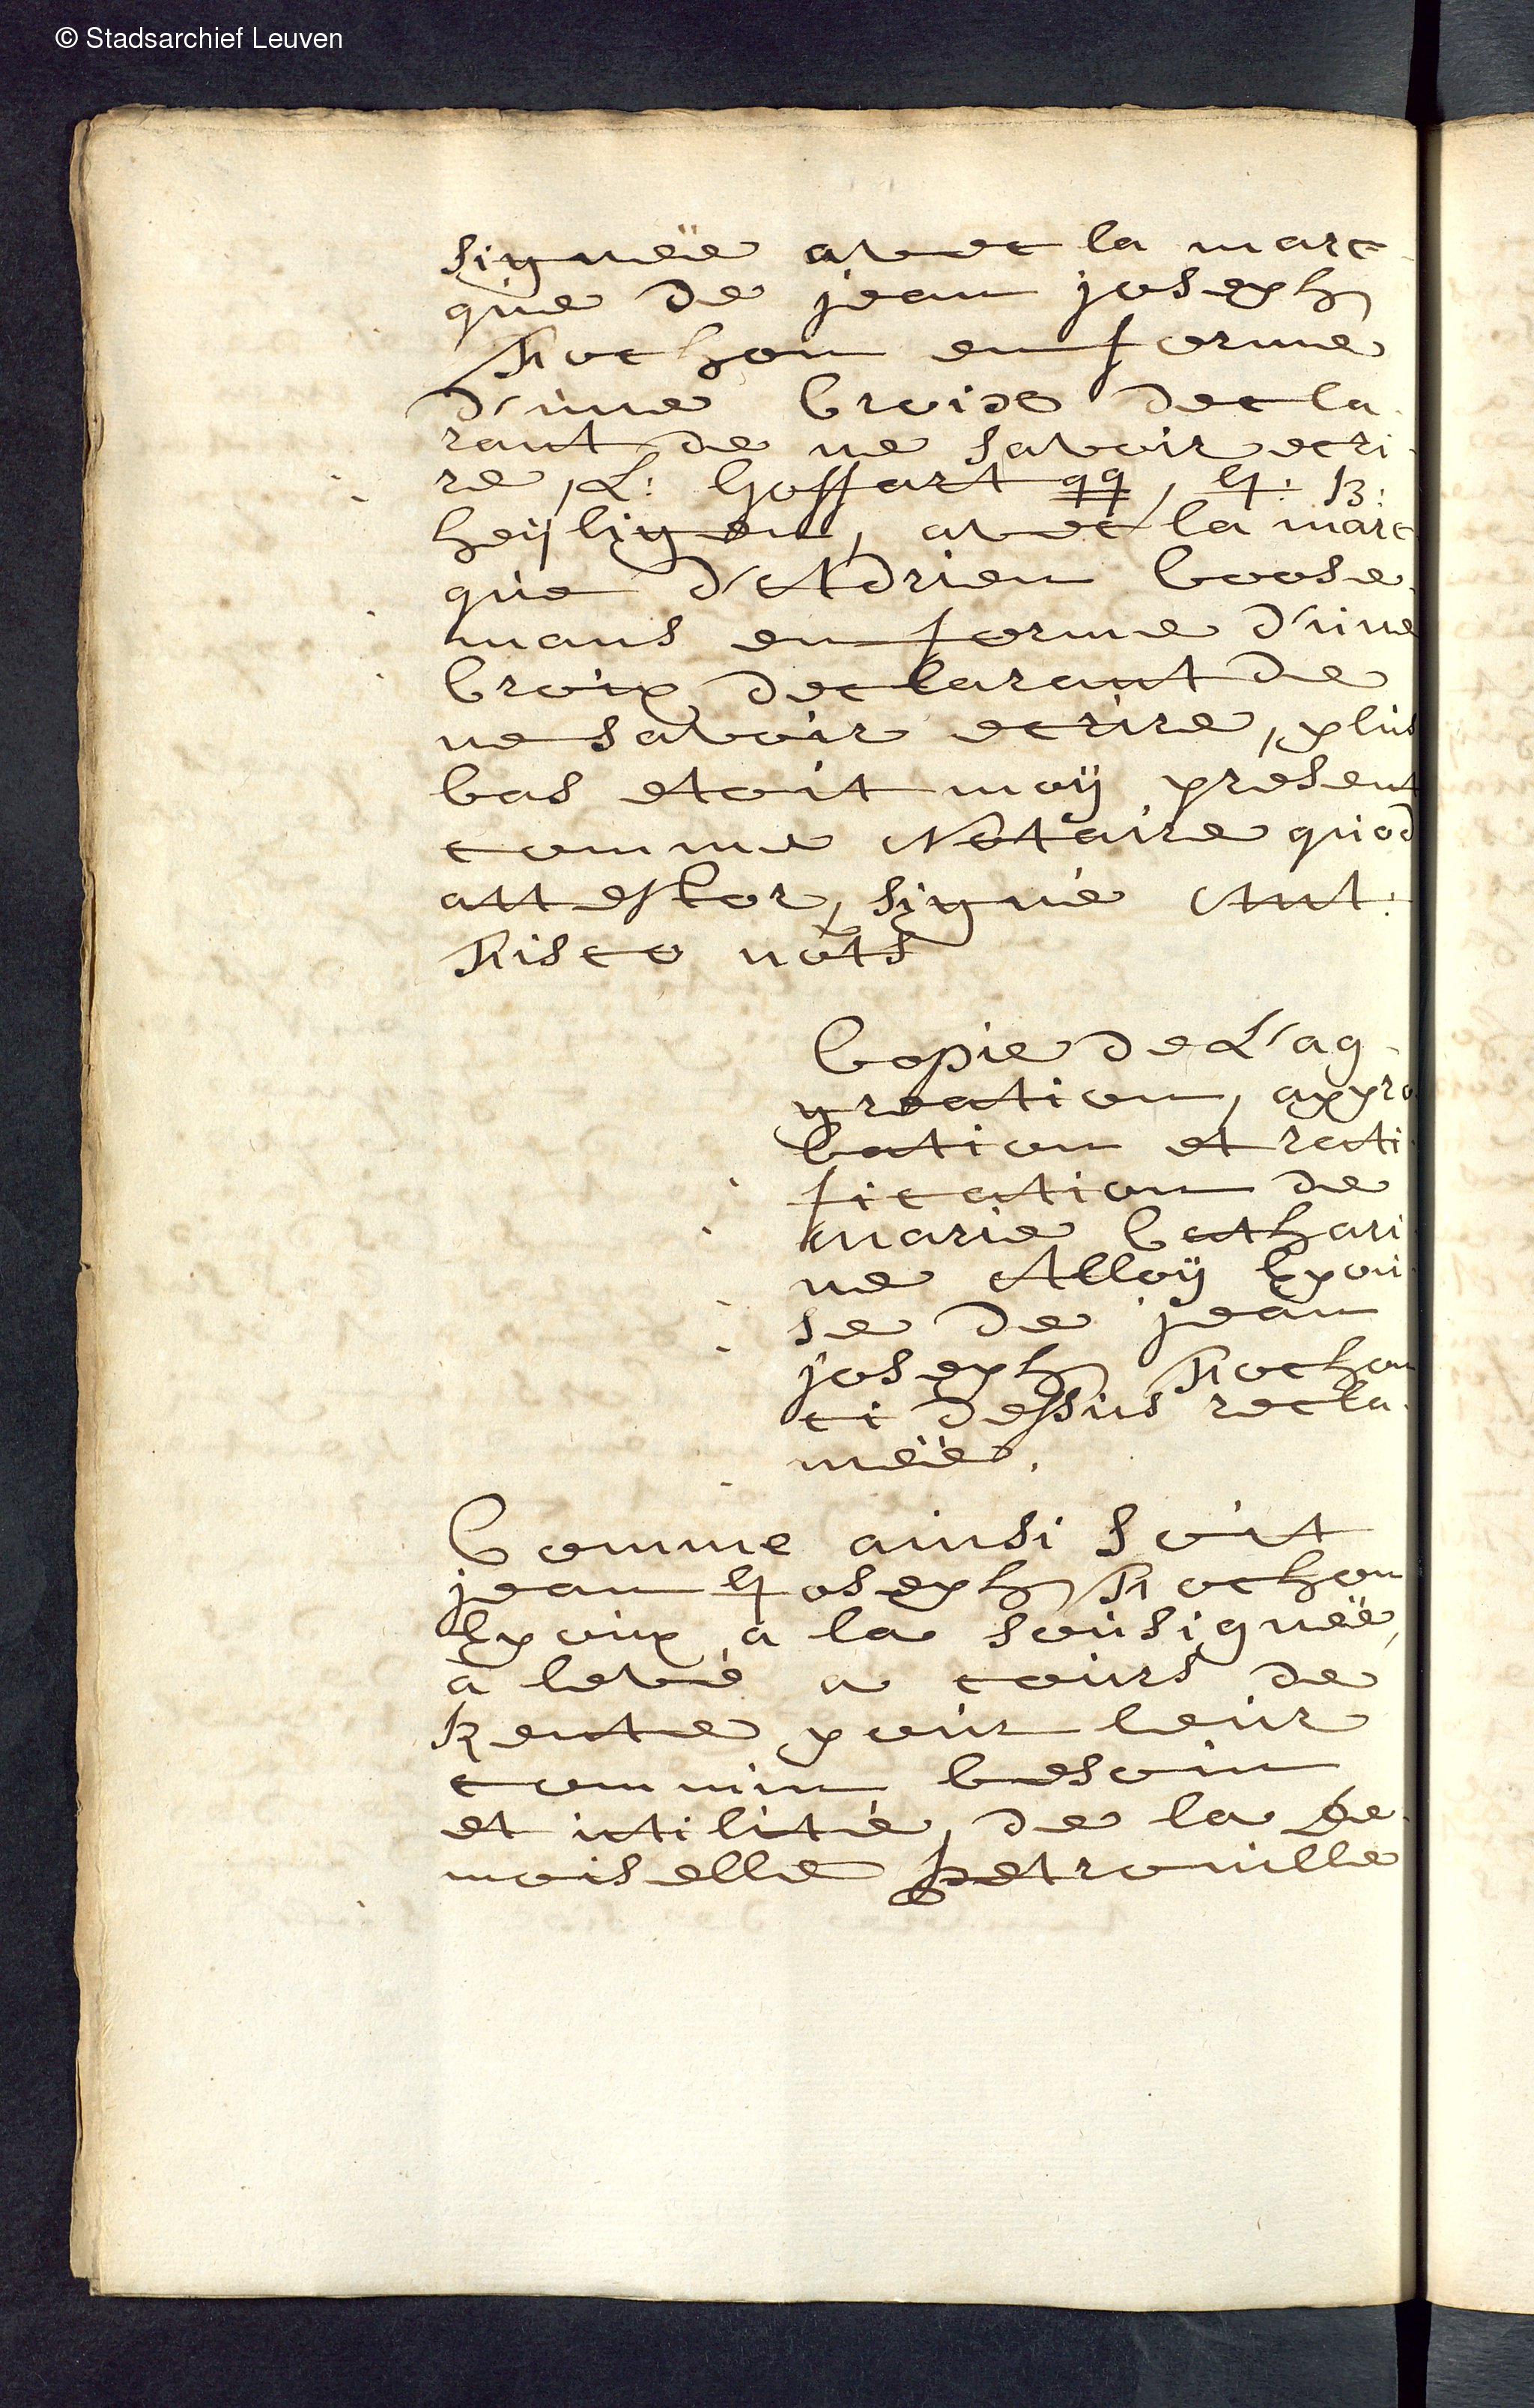 © Stadsarchief Leuven
signeë avec la marc
que de jean joseph
Fiochon en forme
d'une Croise decla
rant de ne savoir ecri
re, L: Goffart qq, J: B:
heijligen, avec la marc
que d'Adrien Coose
mans en forme d'une
Croix declarant de
ne savoir ecrire, plus
bas etoit moÿ present
comme Notaire quod
attestor, signé Ant:
Fisco nots
Copie de L'ag
greation, appro
bation et ratti
fication de
marie Cathari
ne AlloÿEpou
se de jean
joseph Fiochon
ci dessus recla
meë.
Comme ainsi soit
jean Joseph Fiochon
Epoux a la sousigneë,
à levé a cours de
Rente pour leur
commun besoin
et utilité, de la De
moiselle petronille